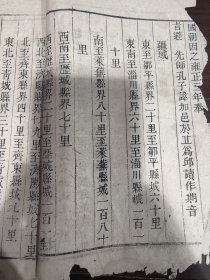 國朝因之雍正二年奉
旨避 先師孔子諱加邑於丘為邱讀作期音
疆域
東至鄒平縣界二十里至鄒平縣城六十里
東南至淄川縣界六十里至淄川縣城一百一
十里
南至萊蕪縣界八十里至萊蕪縣城一百八十
里
西南至歷城縣界七十里
西至歷城縣界四十里至歷城
西北至濟陽縣界九里至濟陽縣城
北至齊東縣界四十里至齊東縣城七十里
東北至青城縣界三十里